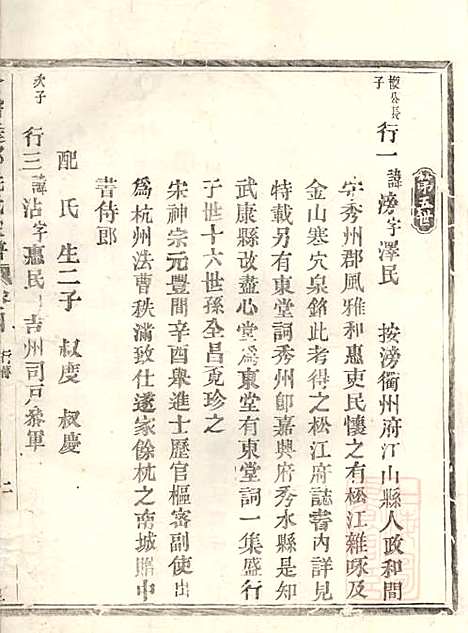 第五世
檢公長子
行一 諱滂字澤民 按滂衢州府江山縣人政和間
守秀州郡風雅和惠吏民懷之有松江雜咏及
金山寒穴泉銘此考得之松江府誌書內詳見
特載另有東堂詞秀州卽嘉興府秀水縣是知
武康縣改盡心堂爲東堂有東堂詞一集盛行
于世十六世孫全昌覓珍之
宋神宗元豐間辛酉舉進士歷官樞密副使出
爲杭州法曹秩滿致仕遂家餘杭之南城贈中
書侍郎
配 氏 生二子 叔度 叔慶
次子
行三 諱沽字惠民 吉州司戸叅軍
行傳
二